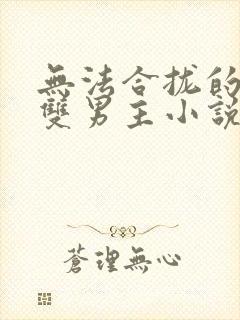 無法合拢的
雙男主小說
蒼理無心